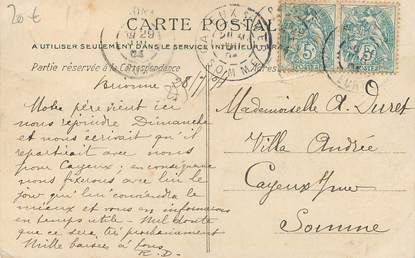 20 €
CARTE POSTALE
A UTILISER SEULEMENT DANS LE SERVICE INTÉRIEUR
Partie réservée à la Correspondance
28/7
Notre père vient ici
nous rejoindre Dimanche
et nous écrivait qu'il
repartirait avec nous
pour Cayeux; en conséquence
nous fixerons avec lui le
jour qui lui conviendra le
mieux et vous en informerons
en temps utile - Nul doute
que ce sera très prochainement
Mille baisers à tous
R. D.
Mademoiselle A. Duret
Villa Andrée
Cayeux s/mer
Somme
5
5
SOMME